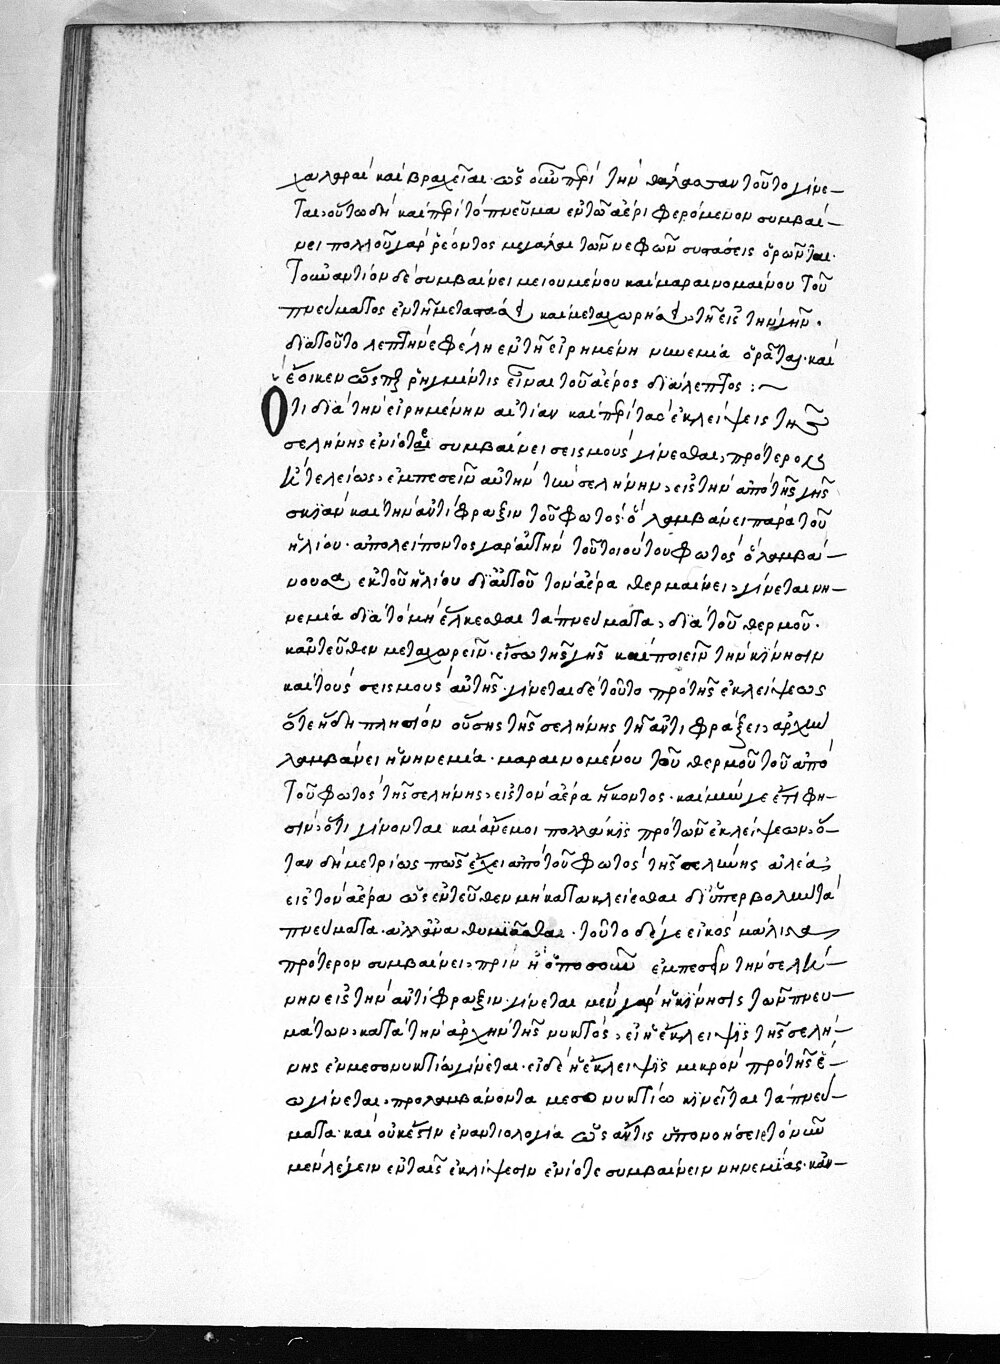 χαλαραὶ καὶ βραχεῖαι· ὡς οὖν περὶ τὴν θάλασσαν τοῦτο γίνε–
ται, οὕτω δὴ καὶ περὶ τὸ πνεῦμα ἐν τῶ ἀέρι φερόμενον συμβαί–
νει πολλοῦ γὰρ ῥέοντος μεγάλαι τῶν νεφῶν συστάσεις ὁρῶνται·
τοὐναντίον δὲ συμβαίνει μειουμένου καὶ μαραινομένου τοῦ
πνεύματος ἐν τῆ μεταστάσει καὶ μεταχωρήσει τῆ εἰς τὴν γῆν·
διὰ τοῦτο λεπτὴ νεφέλη ἐν τῆ εἰρημένη νηνεμία ὁρᾶται· καὶ
ἔοικεν ὥσπερ ῥηγμέν τις εἶναι τοῦ ἀέρος διάλεπτος :~
Ὅτι διὰ τὴν εἰρημένην αἰτίαν καὶ περὶ τὰς ἐκλείψεις τῆς
σελήνης ἐνίοτε συμβαίνει σεισμοὺς γίνεσθαι, πρότερον
ἢ τελείως, ἐμπεσεῖν αὐτὴν τὴν σελήνην, εἰς τὴν ἀπὸ τῆς γῆς
σκιὰν καὶ τὴν ἀντίφραξιν τοῦ φωτὸς ὃ λαμβάνει παρὰ τοῦ
ἡλίου· ἀπολείποντος γὰρ αὐτὴν τοῦ τοιούτου φωτὸς ὃ λαμβά–
νουσα ἐκ τοῦ ἡλίου δι' αὐτοῦ τὸν ἀέρα θερμαίνει, γίνεται νη–
νεμία διὰ τὸ μὴ ἕλκεσθαι τὰ πνεύματα, διὰ τοῦ θερμοῦ·
κἀντεῦθεν μεταχωρεῖν· εἴσω τῆς γῆς καὶ ποιεῖν τὴν κίνησιν
καὶ τοὺς σεισμοὺς αὐτῆς· γίνεται δὲ τοῦτο πρὸ τῆς ἐκλείψεως
ὅτε ἤδη πλησίον οὔσης τῆς σελήνης τῆ ἀντιφράξει, ἀρχὴν
λαμβάνει ἡ νηνεμία· μαραινομένου τοῦ θερμοῦ τοῦ ἀπὸ
τοῦ φωτὸς τῆς σελήνης, εἰς τὸν ἀέρα ἥκοντος· καὶ μήν γε ἔτι φη–
σὶν, ὅτι γίνονται καὶ ἄνεμοι πολλάκις πρὸ τῶν ἐκλείψεων, ὅ–
ταν δὴ μετρίως πως ἔχει ἀπὸ τοῦ φωτὸς τῆς σελήνης ἀλέας
εἰς τὸν ἀέρα ὡς ἐντεῦθεν μὴ κατακλείεσθαι δι' ὑπερβολὴν τὰ
πνεύματα· ἀλλ' ἀναθυμιᾶσθαι· τοῦτο δέ γε εἰκὸς μάλιστα
πρότερον συμβαίνει, πρὶν ἢ ὁποσοῦν ἐμπεσεῖν τὴν σελή–
νην εἰς τὴν ἀντίφραξιν· γίνεται μὲν γὰρ ἡ κίνησις τῶν πνευ–
μάτων, κατὰ τὴν ἀρχὴν τῆς νυκτὸς, εἰ ἡ ἔκλειψις τῆς σελή–
νης ἐν μεσονυκτίω γίνεται· εἰ δὲ ἡ ἔκλειψις μικρὸν πρὸ τῆς ἕ–
ω γίνεται, προλαμβάνοντα μεσονυκτίω κινεῖται τὰ πνεύ–
ματα· καὶ οὐκ ἔστιν ἐναντιολογία ὡς ἄν τις ὑπονοήσειε τὸ νῦν
μὲν λέγειν ἐν ταῖς ἐκλείψεσιν ἐνίοτε συμβαίνειν νηνεμίας· κἀν–